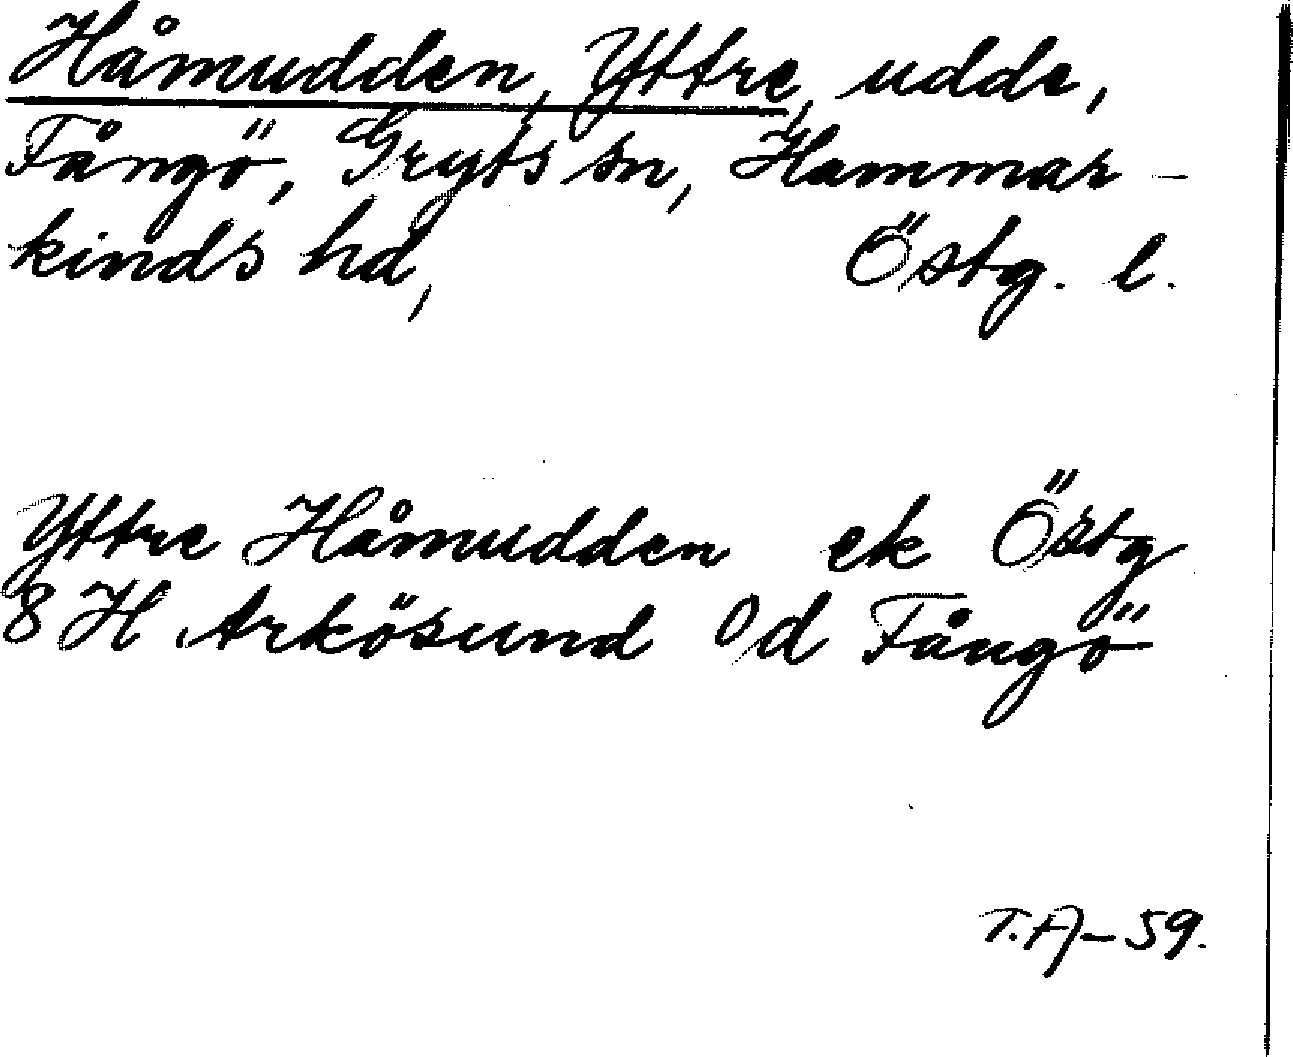 Håmudden, Yttre, udde,
Fångö, Gryts sn, Hammar-
kinds hd, Östg. l.
Yttre Håmudden ek Östg
8 H Arkösund 0/d Fångö
T.A-59.